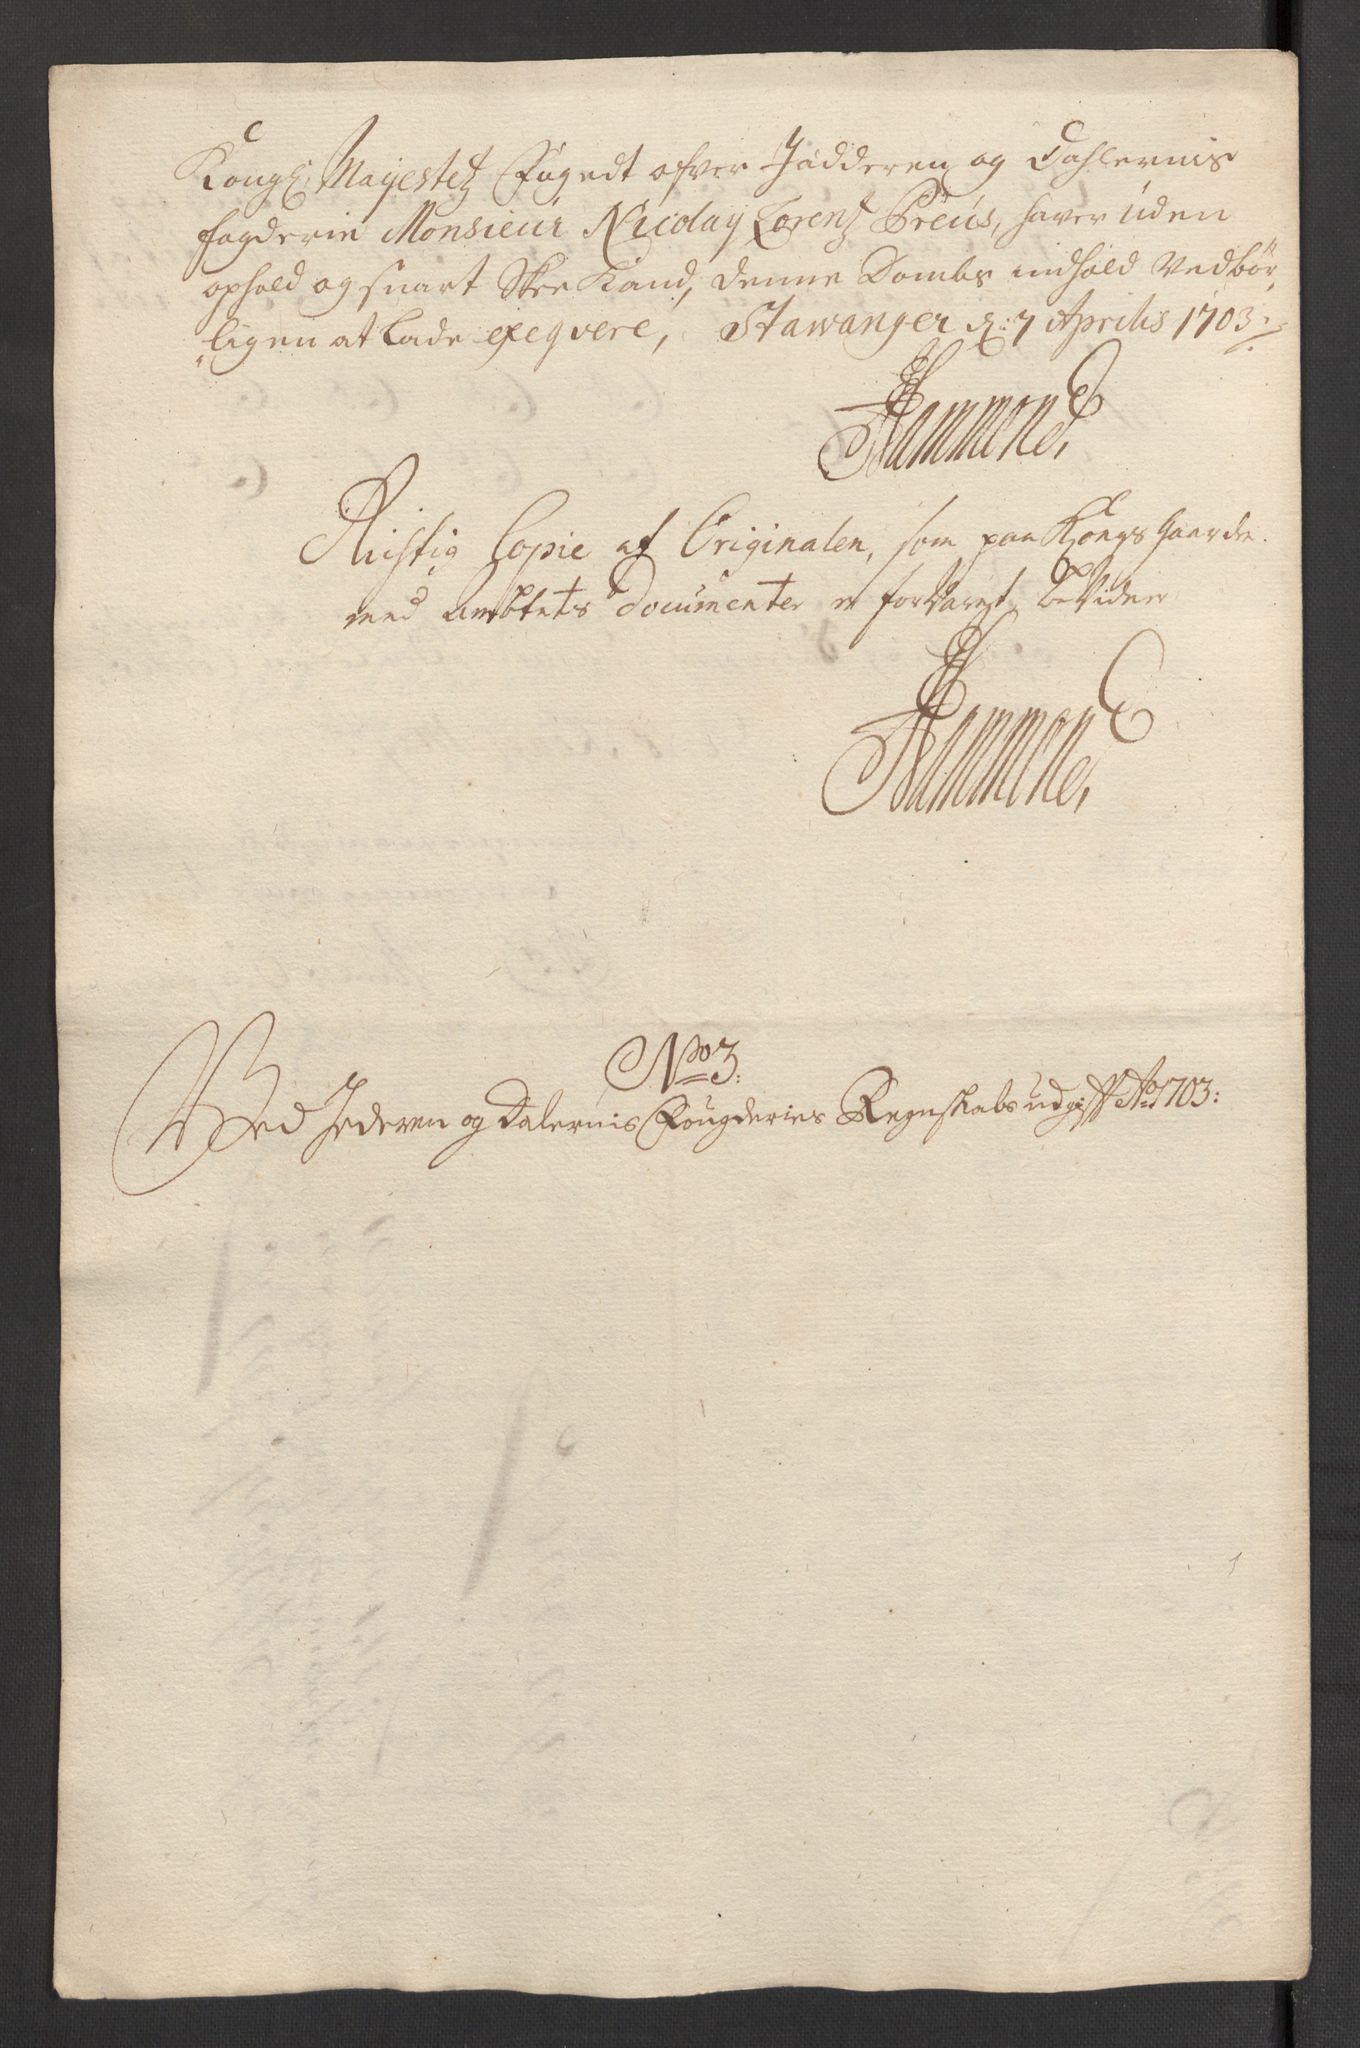 Kongl: Mayestetz Fogedt ofver Jædderen og Dahlernis
fogderie Monsieur Nicolay Lorentz Preus, haver uden
ophold og snart Skee Kand, denne Dombs indhold Vedbør„
„ligen at lade exeqvere, Stawanger d: 7 Aprilis 1703:
Hammond,
Rigtig Copie af Originalen, som paa Kongsgaarden
med ambtets Documenter er forvaret, bevidner
Hammond,
No 3:
Ved Jederen og Dalernis Fougderies Regnskabs udgift Ao 1703: